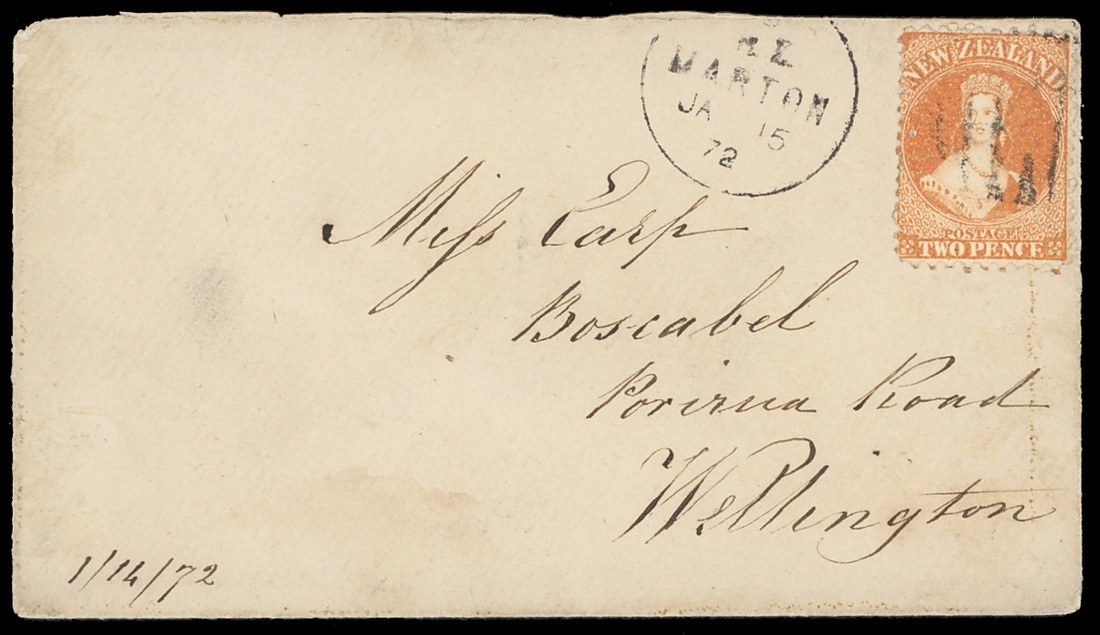 NZ
MARTON
JA 15
72
NEW ZEALAND
POSTAGE
TWO PENCE
Miss Earp
Boscabel
Porirua Road
Wellington
1/14/72